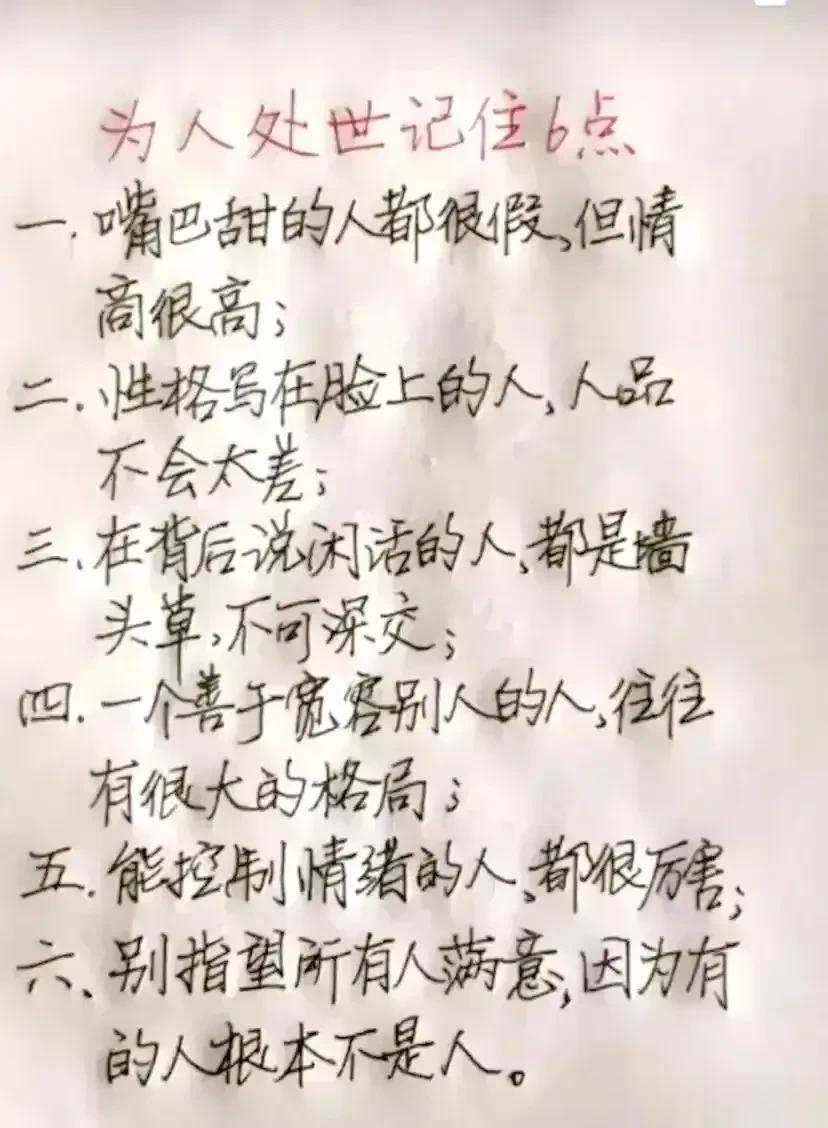 为人处世记住6点
一.嘴巴甜的人都很假,但情
商很高;
二.性格写在脸上的人,人品
不会太差;
三.在背后说闲话的人,都是墙
头草,不可深交;
四.一个善于宽容别人的人,往往
有很大的格局;
五.能控制情绪的人,都很厉害;
六、别指望所有人满意,因为有
的人根本不是人。